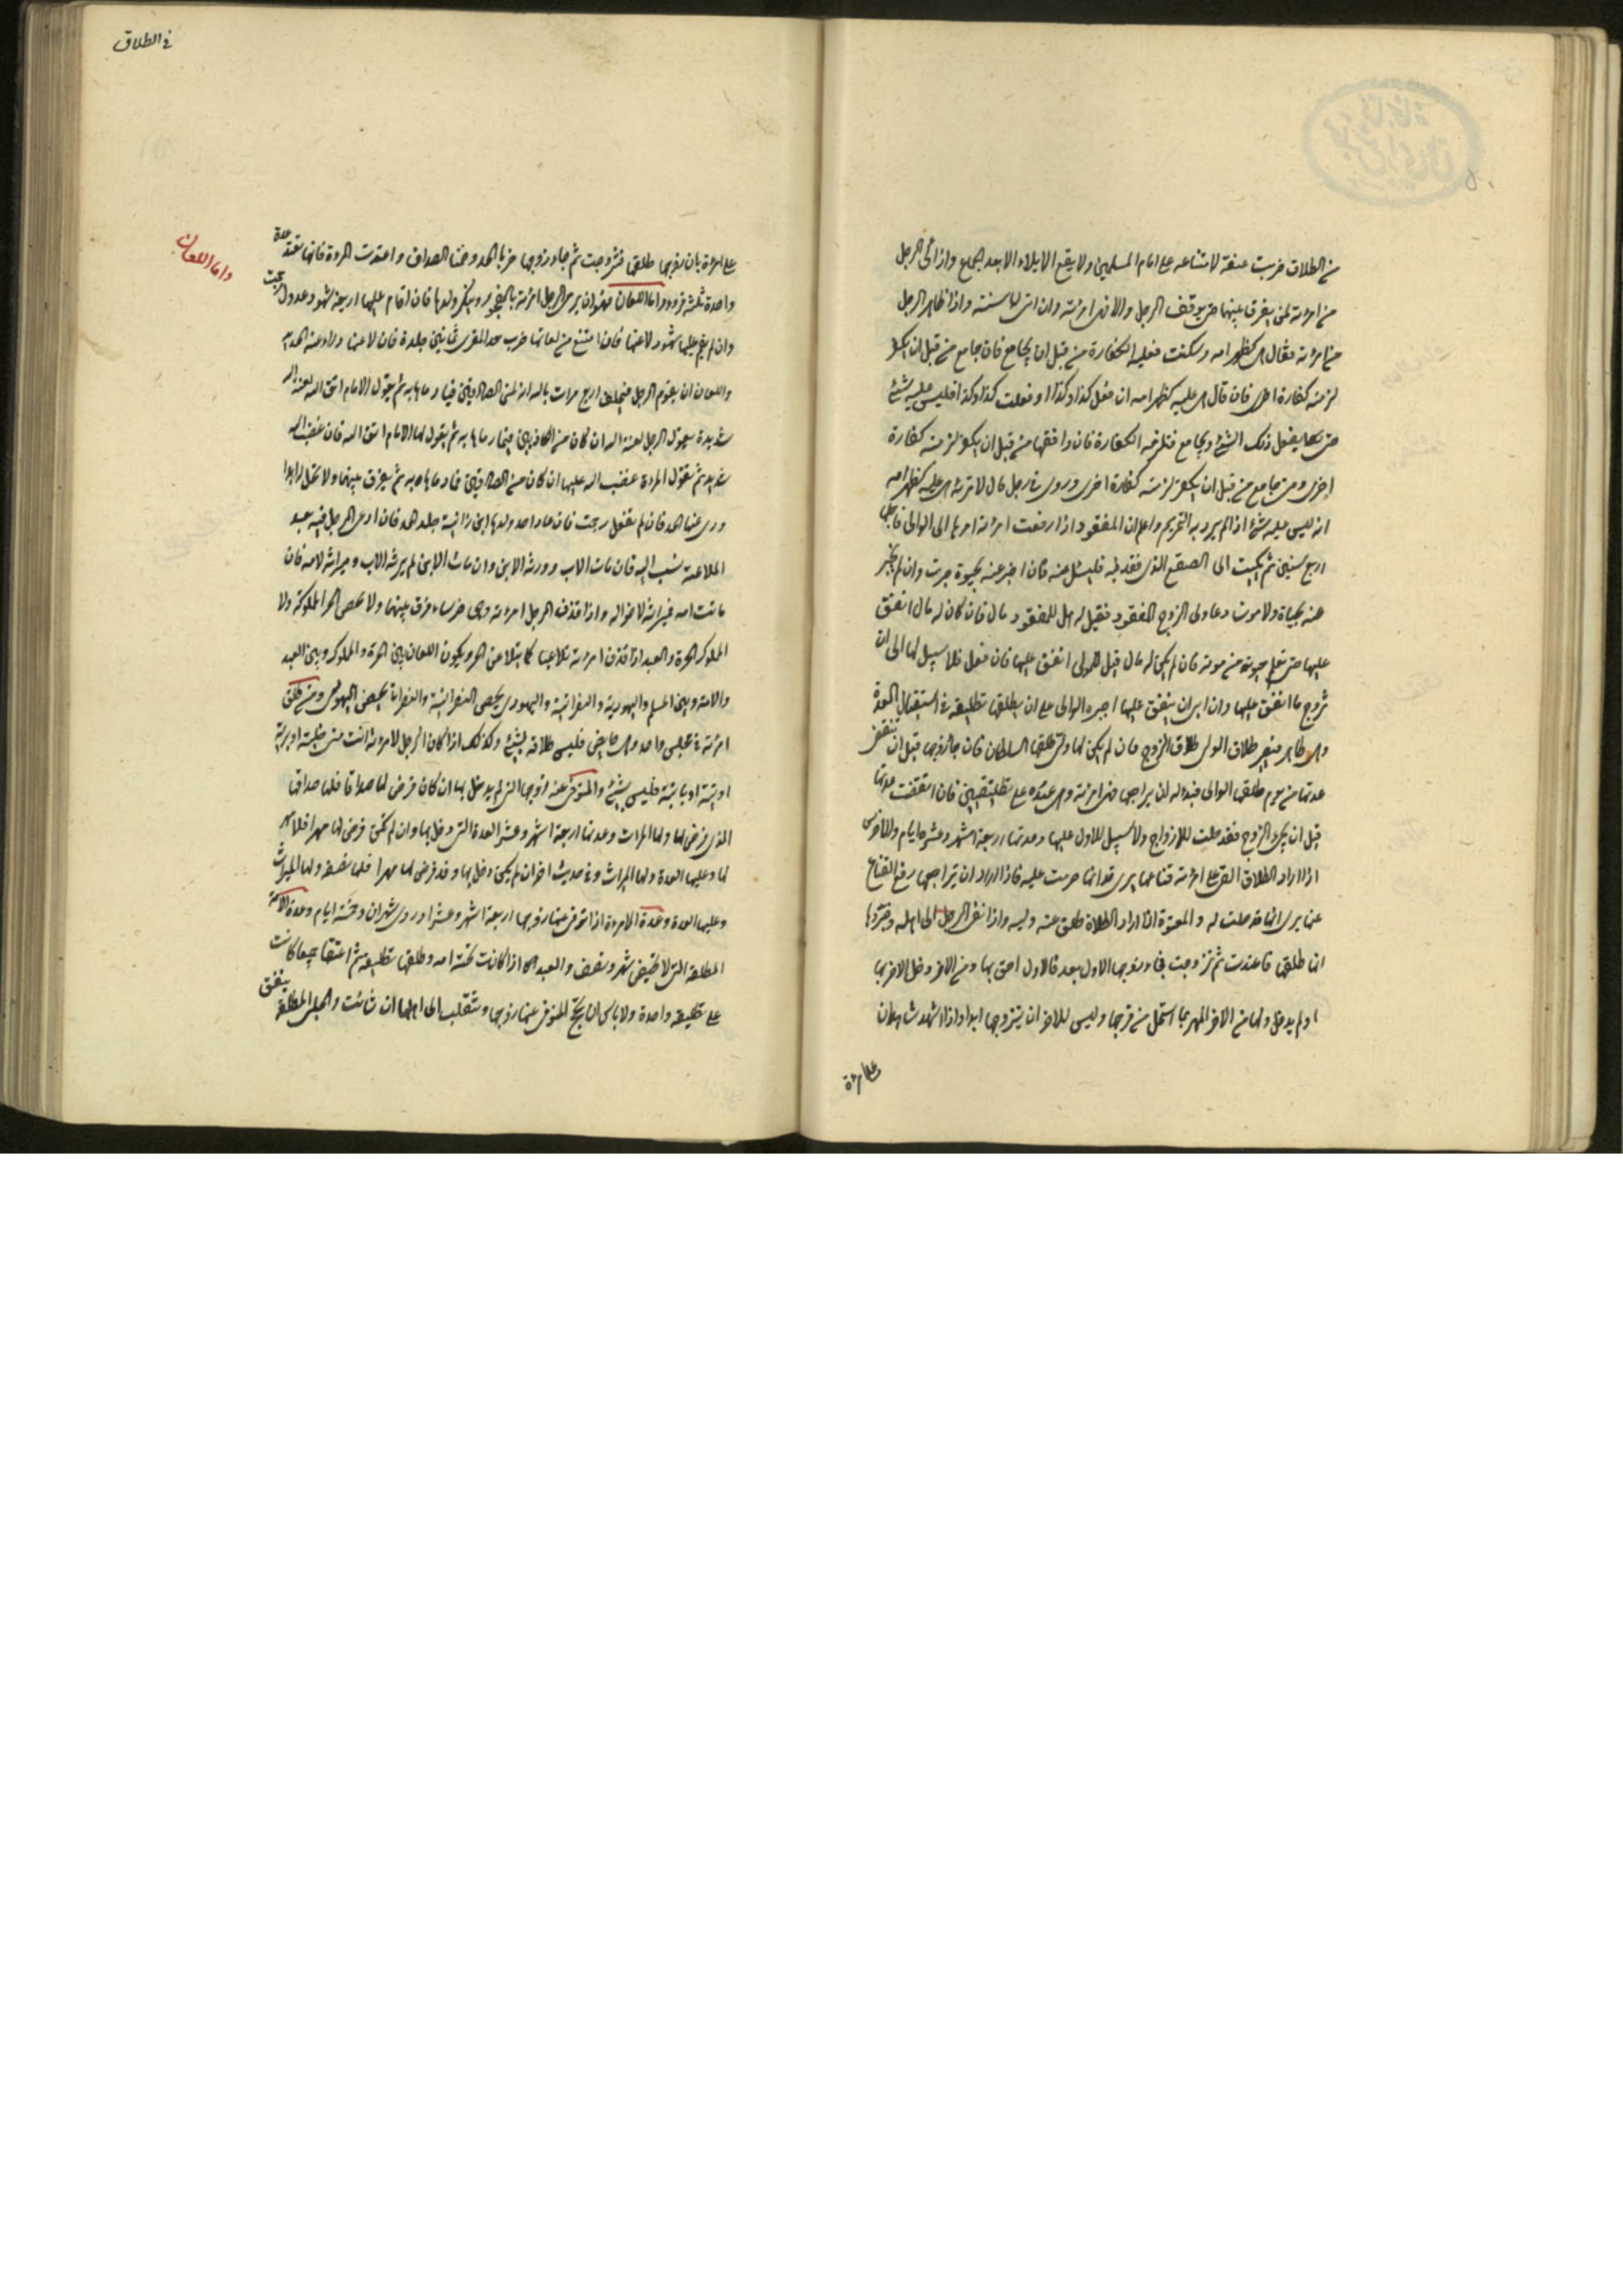 من الطلاق ضربت عنقه لامتناعه على امام المسلمين ولا يقع الايلاء الا بعد واذا الى الرجل
من امرءته لمن يفرق بينهما حتى يوقف الرجل وان سنة واذا ظاهر الرجل
من امرءته فقال هى كظهر امه وسكت فعليه الكفارة من قبل ان يجامع فان جامع من قبل ان يكفر
لزمته كفارة اخرى فان قال هى عليه كظهر امه ان فعل كذا وكذا او فعلت كذا وكذا فليس عليه شئ
حتى يفعل ذلك الشئ ويجامع فتلزمه الكفارة فان واقعها من قبل ان يكفر لزمته كفارة
اخرى ومن جامع من قبل ان يكفر لزمته كفارة اخرى وروى فى رجل قال لامرءته هى عليه كظهر امه
انه ليس عليه شئ اذا لم يرد به التحريم واعلم ان المفقود اذا رفعت امرءته امرها الى الوالى فاجلها
اربع سنين ثم يكتب الى الصقع الذى فقد فيه فليسئل عنه فان اخبر عنه بحيوة صبرت وان لم يخبر
عنه بحياة ولا موت دعا ولى الزوج المفقود فقيل له هل للمفقود مال فان كان له مال انفق
عليها حتى تعلم حيوته من موته فان لم يكن له مال قيل للولى انفق عليها فان فعل فلا سبيل لها الى ان
تزوج ما انفق عليها وان ابى ان ينفق عليها اجبره الوالى على ان يطلقها تطليقة فى استقبال العدة
وهى طاهر فيصير طلاق الولى طلاق الزوج فان لم يكن لها ولى طلقها السلطان فان جاء زوجها قبل ان تنقضى
عدتها من يوم طلقها الوالى فبدا له ان يراجعها فهى امرءته وهى عنده على تطليقتين فان انقضت عدتها
قبل ان يجئ الزوج فقد حلت للازواج ولا سبيل للاول عليها وعدتها اربعة اشهر وعشرة ايام والاخرس
اذا اراد الطلاق القى على امرءته قناعها يرى قد انها حرمت عليه فاذا اراد ان يراجعها رفع القناع
عنها يرى انها قد حلت له والمعتوه اذا اراد الطلاق طلق عنه وليه واذا نعى الرجل الى اهله وخبروها
انه طلقها فاعتدت ثم تزوجت فجاء زوجها الاول بعد فالاول احق بها من الاخر دخل الاخر بها
او لم يدخل ولها من الاخر المهر بما استحل من فرجها وليس للاخر ان يتزوجها ابدا واذا شهد شاهدان
على امرءة
فى الطلاق
على امرءة بان زوجها طلقها فتزوجت ثم جاء زوجها ضربا الحد وضمنا الصداق واعتدت المرءة فانها تعتد عدة
واحدة ثلثة قروء واما اللعان فهو ان يرمى الرجل امرءته بالفجور وينكر ولدها فان اقام عليها اربعة شهود عدول رجمت
واما اللعان
وان لم يقم عليها شهود لاعنها فان امتنع من لعانها ضرب حد المفترى ثمانين جلدة فان لاعنها درء عنه الحد
واللعان ان يقوم الرجل فيحلف اربع مرات بالله انه لمن الصادقين فيما رماها به ثم يقول الامام اتق الله لعنة الله
شديدة ثم يقول الرجل لعنة الله ان كان من الكاذبين فيما رماها به ثم يقول لها الامام اتق الله فان غضب الله
شديد ثم تقول المرءة غضب الله عليها ان كان من الصادقين فيما رماها به ثم يفرق بينهما ولا تحل له ابدا
درء عنها الحد فان لم تفعل رجمت فان دعا احد ولدها ابن زانية جلد الحد فان ادعى الرجل فيه بعد
الملاعنة نسب اليه فان مات الاب ورثه الابن وان مات الابن لم يرثه الاب وميراثه لامه فان
ماتت امه فميراثه لاخواله واذا قذف الرجل امرءته وهى خرساء فرق بينهما ولا يحصن الحر المملوكة ولا
المملوك الحرة والعبد اذا قذف امرءته تلاعنا كما يتلاعن الحر ويكون اللعان بين الحرة والمملوك وبين العبد
والامة وبين المسلم واليهودية والنصرانية واليهودى يحصن النصرانية والنصرانى يحصن اليهودية ومن طلق
امرءته فى مجلس واحد وهى حايض فليس طلاقه بشئ وكذلك اذا قال الرجل لامرءته انت منى خلية او برية
او بتة او باينة فليس بشئ والمتوفى عنه زوجها التى لم يدخل بها ان كان فرض لها صداقا فلها صداقها
الذى فرض لها ولها الميراث وعدتها اربعة اشهر وعشر العدة التى دخل بها وان لم يكن فرض لها مهرا فلا مهر
لها وعليها العدة ولها الميراث وفى حديث اخر ان لم يكن دخل بها وقد فرض لها مهرا فلها نصفه ولها الميراث
وعليها العدة وعدة الامة اذا توفى عنها زوجها اربعة اشهر وعشرا وروى شهران وخمسة ايام وعدة الامة
المطلقة التى لا تحيض شهر ونصف والعبد اذا كانت تحته امة وطلقها تطليقة ثم اعتقا جميعا كانت
على تطليقة واحدة ولا باس ان تحج المتوفى عنها زوجها وتنقلب الى اهلها ان شائت والحبلى المطلقة
ينفق